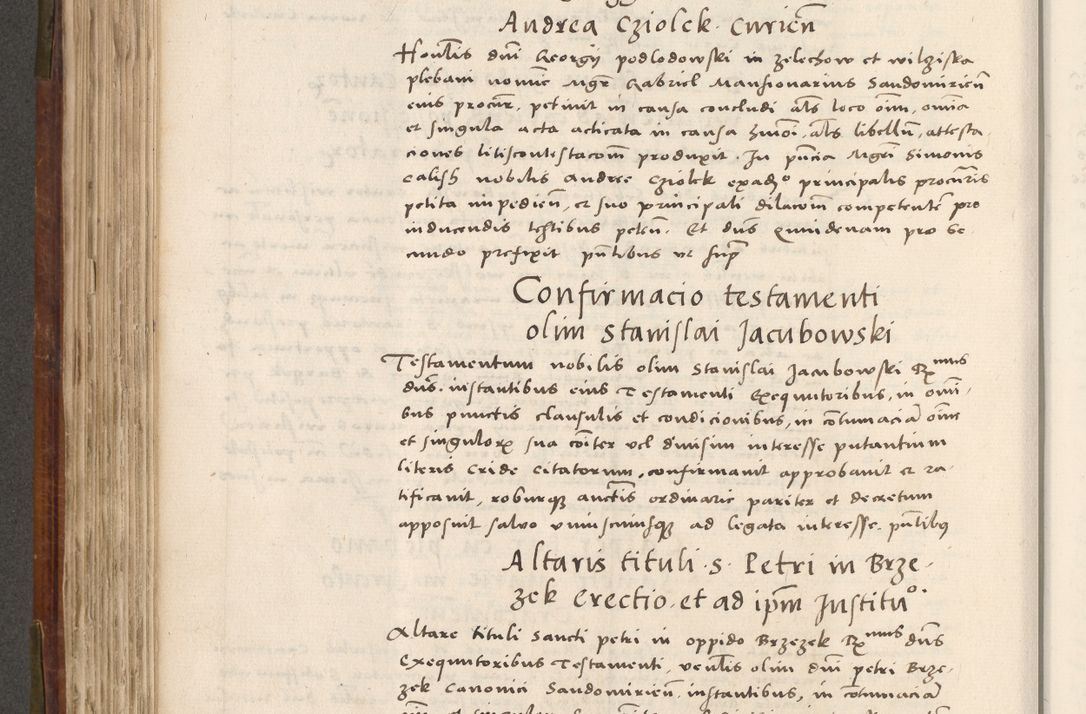 Andrea Cziolek Curien̄
Honīlis dn̄i Georgij podlodowski in zelechow et wilziska
plebani nomine Mgr̄ Gabriel Mansionarius Sandomirien̄
eius procur̄, petiuit in causa concludi als̄ loco oīm, omīa
et singula acta acticata in causa hmōi, als̄ libellum̄, attesta
ciones litiscontestacōm produxit. In pn̄cia Mgrī Simonis
Calish nobilis Andree Cziolek exadꝫo principalis procūris
petita impedien̄, et suo principali dilacōm competentē pro
inducendis testibus peten̄. Et dn̄s Quindenam pro se-
cundo prefixit pn̄tibus ut supr̄
Confirmacio testamenti
olim Stanislai Jacubowski
Testamentum nobilis olim Stanislai Jacubowski Rx̄mus
dn̄s. instantibus eius Testamenti Exequutoribus, in omī-
bus punctis clausulis et condicionibus, in cōtumaciā oīm
et singulorꝝ sua cōiter vel diuisim interesse putantium
literis Cride Citatorum, confirmauit approbauit et ra-
tificauit, roburqꝫ auctīs ordinarie pariter et decretum
apposuit saluo vniuscuiusqꝫ ad legata interesse. pn̄tibꝰ
Altaris tituli S. Petri in Brze-
zek Erectio et ad ip̄m Institūo.
Altare tituli Sancti petri in oppido Brzezek Rx̄mus dn̄s
Exequutoribus Testamenti, uenīlis olim dn̄i petri Brze-
zek Canonici Sandomirien̄, instantibus, in cōtumaciā